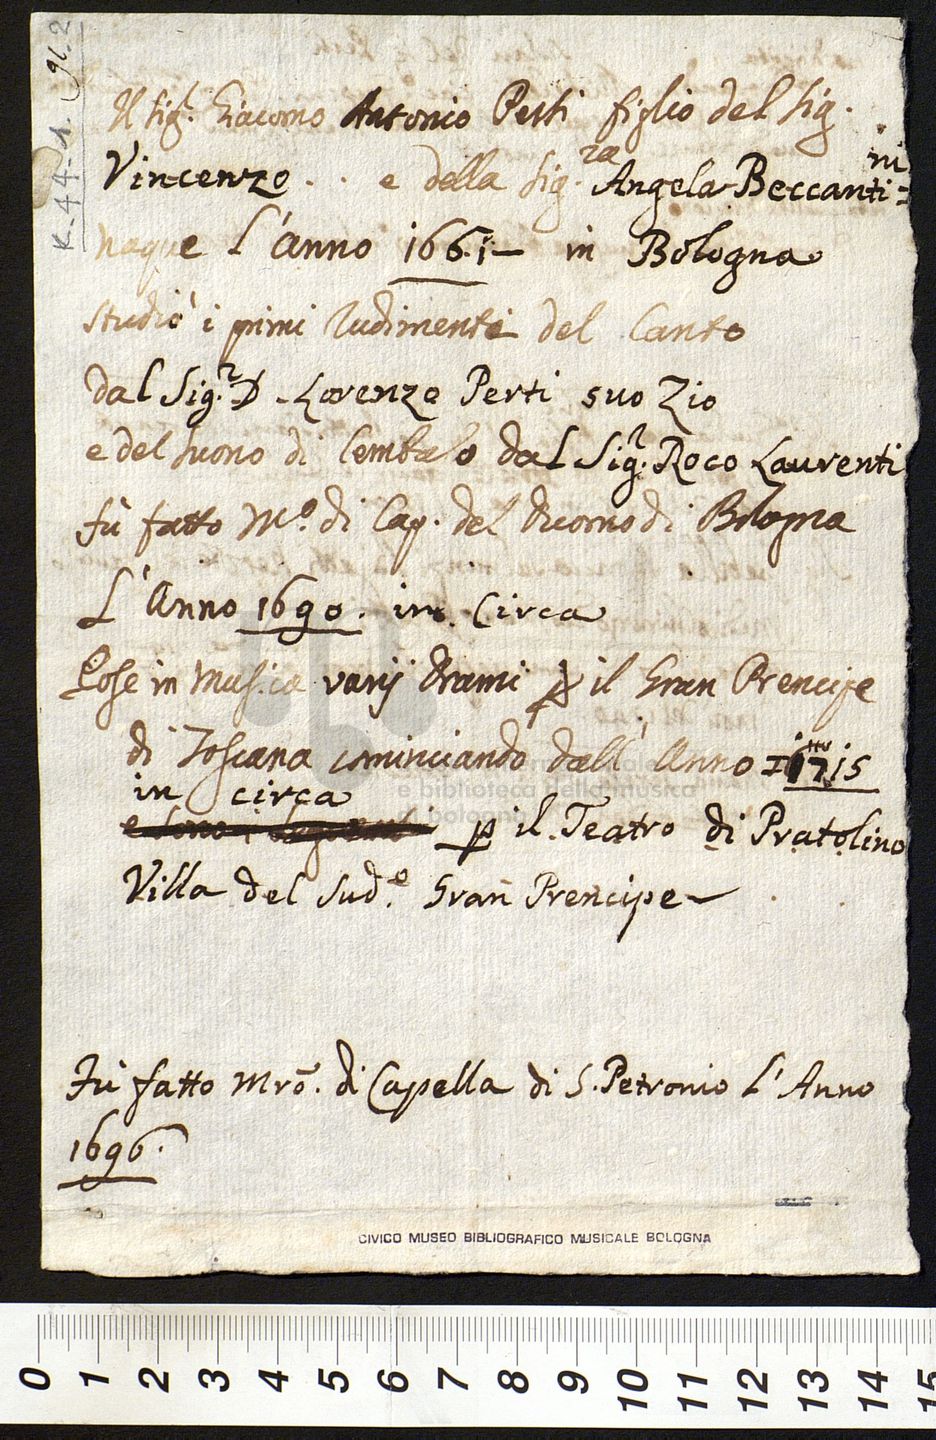 K.44.1.91.2
Il Sig.r Giacomo Antonio Perti figlio del Sig.
Vincenzo . . e della Sig.ra Angela Beccantini
naque l'anno 1661 in Bologna
studiò i primi rudimenti del Canto
dal Sig.r D. Lorenzo Perti suo Zio
e del suono di Cembalo dal Sig.r Roco Laurenti
fù fatto M.o di Cap. del Duomo di Bologna
L'Anno 1690. in Circa
Pose in Musica varij Drami p il Gran Prencipe
di Toscana cominciando dall' Anno 1715
in circa
p il Teatro di Pratolino
Villa del Sud.o Gran Prencipe
Fù fatto Mro. di Capella di S. Petronio l'Anno
1696.
CIVICO MUSEO BIBLIOGRAFICO MUSICALE BOLOGNA
e biblioteca della musica
di bologna
0 1 2 3 4 5 6 7 8 9 10 11 12 13 14 15